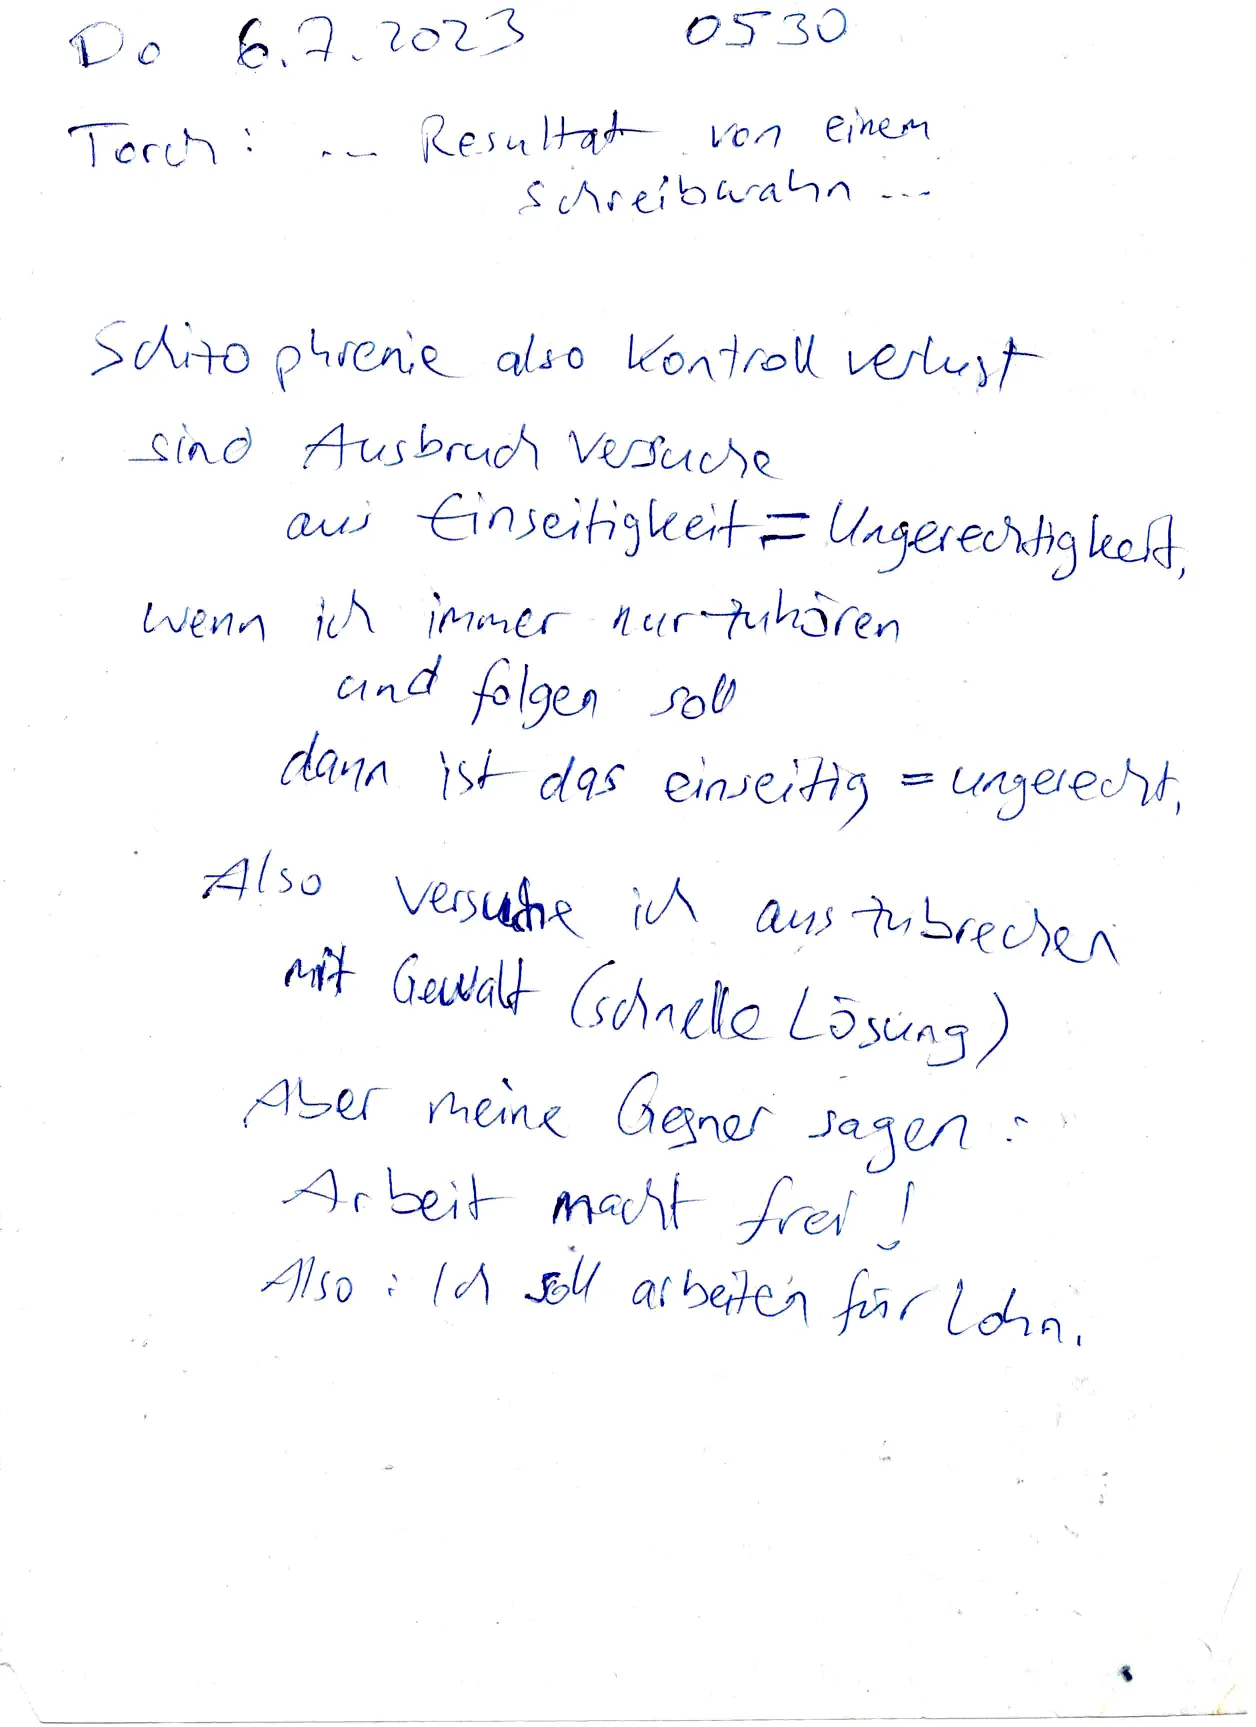 Do 6.7.2023 0530
Torch: ... Resultat von einem
Schreibwahn ...
Schizophrenie also Kontrollverlust
sind Ausbruch Versuche
aus Einseitigkeit = Ungerechtigkeit,
wenn ich immer nur zuhören
und folgen soll
dann ist das einseitig = ungerecht,
Also versuche ich auszubrechen
mit Gewalt (schnelle Lösung)
Aber meine Gegner sagen:
Arbeit macht frei!
Also: Ich soll arbeiten für Lohn.